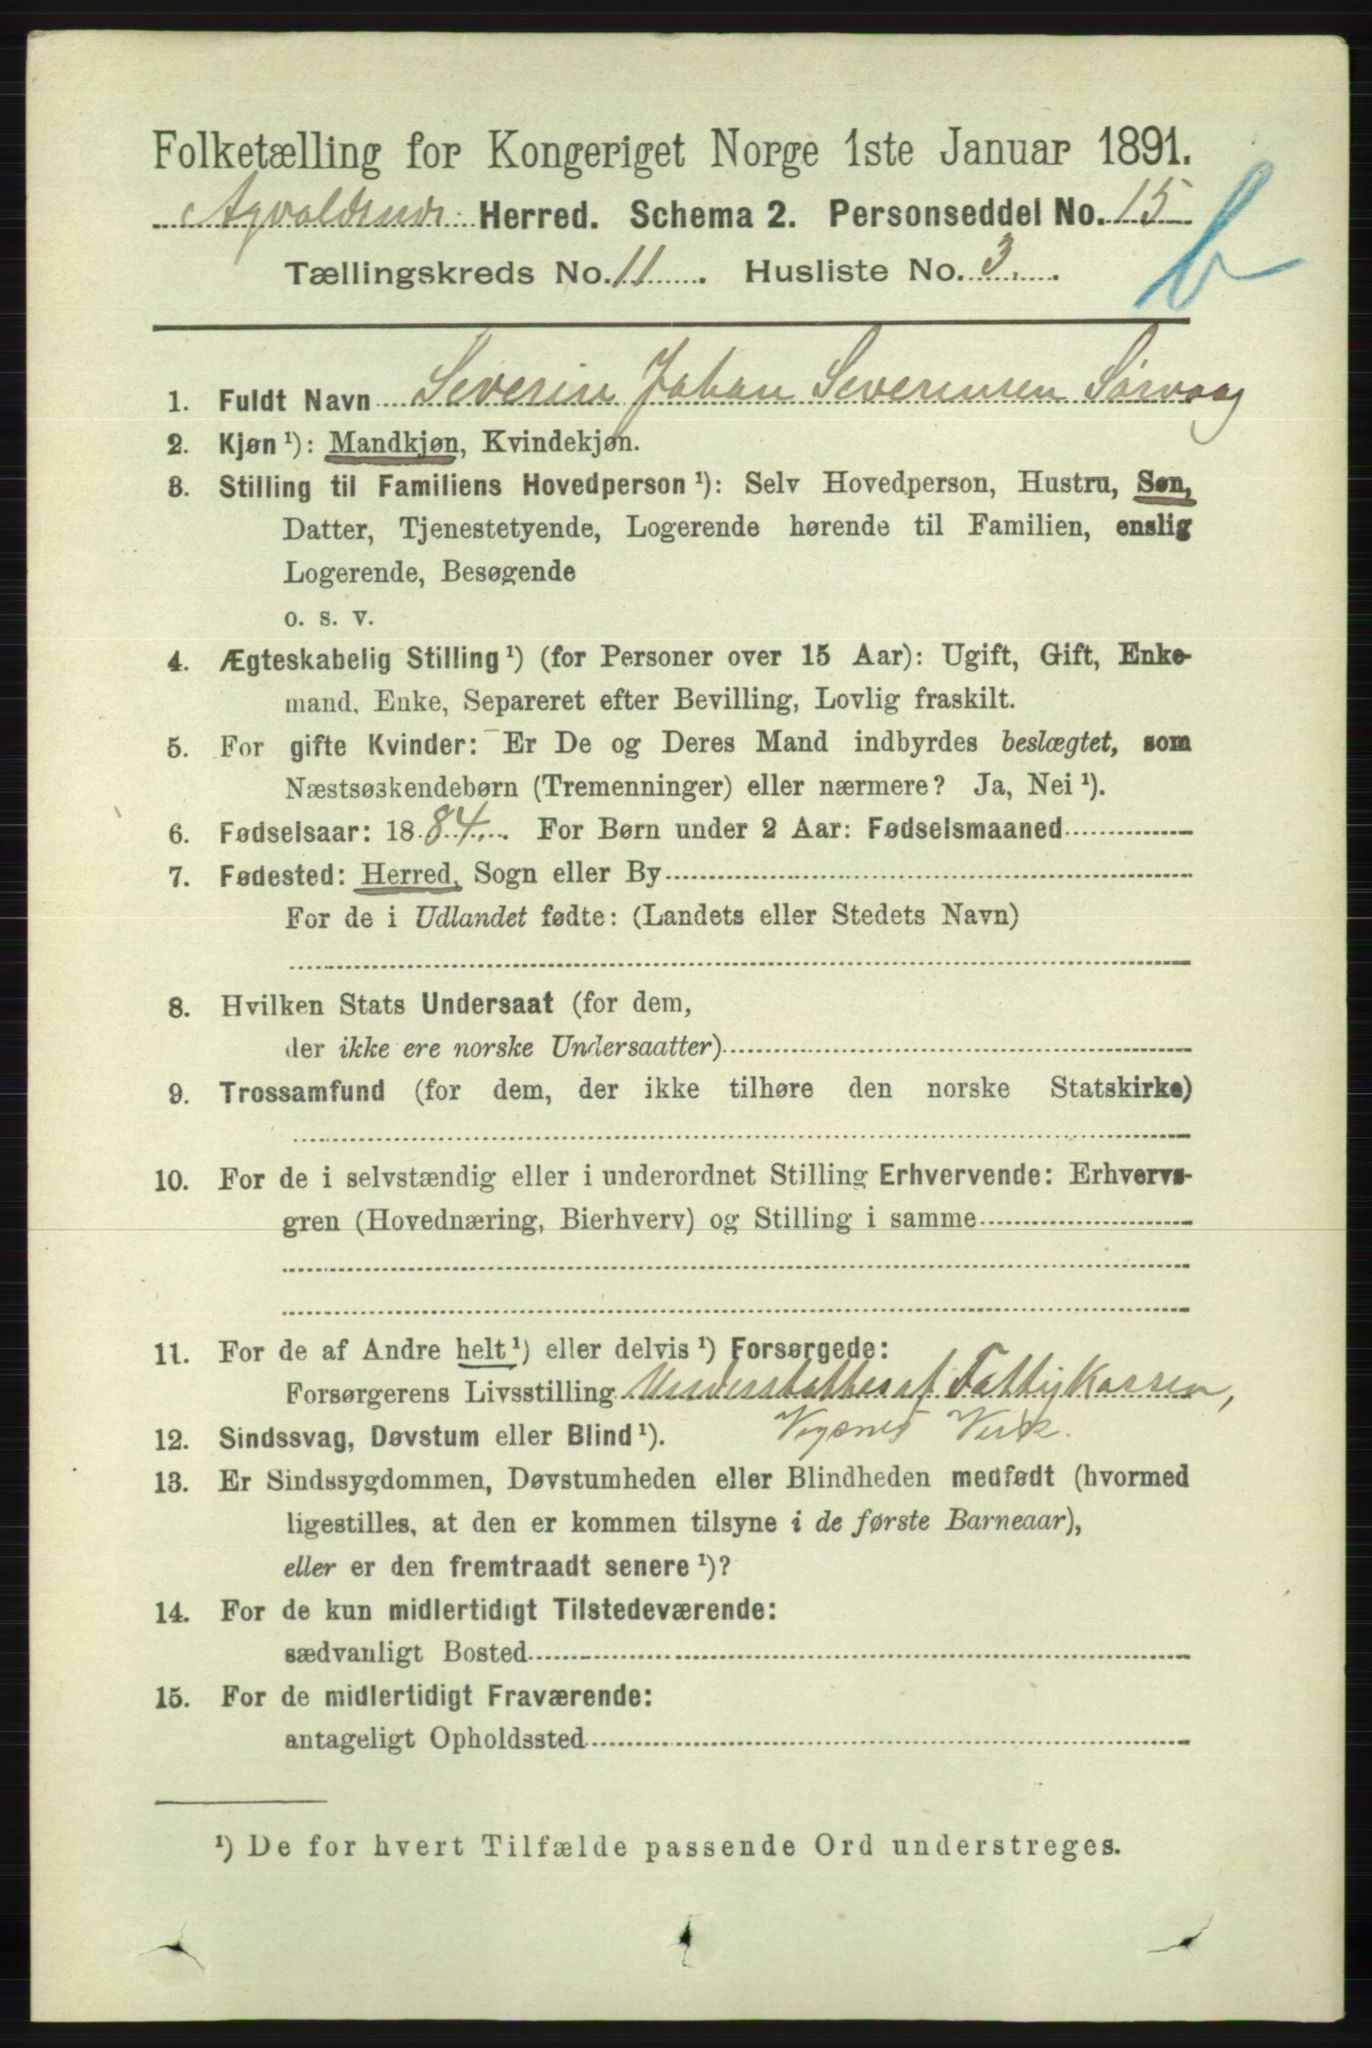 Folketælling for Kongeriget Norge 1ste Januar 1891.
Herred. Schema 2. Personseddel No. 15
b
Tællingskreds No. 11. Husliste No. 3.
1. Fuldt Navn Severin Johan Severinsen Sørvaag
2. Kjøn ¹): Mandkjøn, Kvindekjøn.
3. Stilling til Familiens Hovedperson ¹): Selv Hovedperson, Hustru, Søn,
Datter, Tjenestetyende, Logerende hørende til Familien, enslig
Logerende, Besøgende
o. s. v.
4. Ægteskabelig Stilling ¹) (for Personer over 15 Aar): Ugift, Gift, Enke-
mand, Enke, Separeret efter Bevilling, Lovlig fraskilt.
5. For gifte Kvinder: Er De og Deres Mand indbyrdes beslægtet, som
Næstsøskendebørn (Tremenninger) eller nærmere? Ja, Nei ¹).
6. Fødselsaar: 1884. For Børn under 2 Aar: Fødselsmaaned
7. Fødested: Herred, Sogn eller By
For de i Udlandet fødte: (Landets eller Stedets Navn)
8. Hvilken Stats Undersaat (for dem,
der ikke ere norske Undersaatter)
9. Trossamfund (for dem, der ikke tilhøre den norske Statskirke)
10. For de i selvstændig eller i underordnet Stilling Erhvervende: Erhvervs-
gren (Hovednæring, Bierhverv) og Stilling i samme
11. For de af Andre helt ¹) eller delvis ¹) Forsørgede:
Forsørgerens Livsstilling Understøttes af Fattigkassen,
Vigsnes Verk.
12. Sindssvag, Døvstum eller Blind ¹).
13. Er Sindssygdommen, Døvstumheden eller Blindheden medfødt (hvormed
ligestilles, at den er kommen tilsyne i de første Barneaar),
eller er den fremtraadt senere ¹)?
14. For de kun midlertidigt Tilstedeværende:
sædvanligt Bosted
15. For de midlertidigt Fraværende:
antageligt Opholdssted
¹) De for hvert Tilfælde passende Ord understreges.